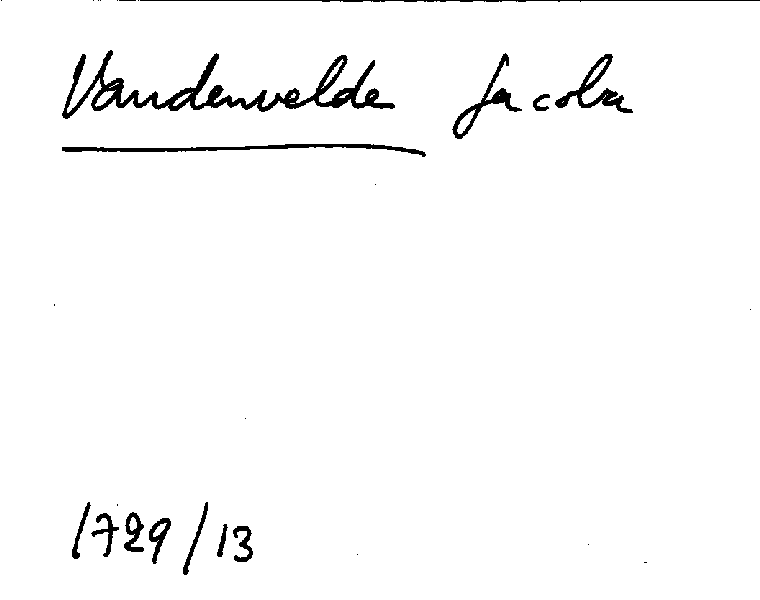 Vandenvelde Jacoba
1729/13